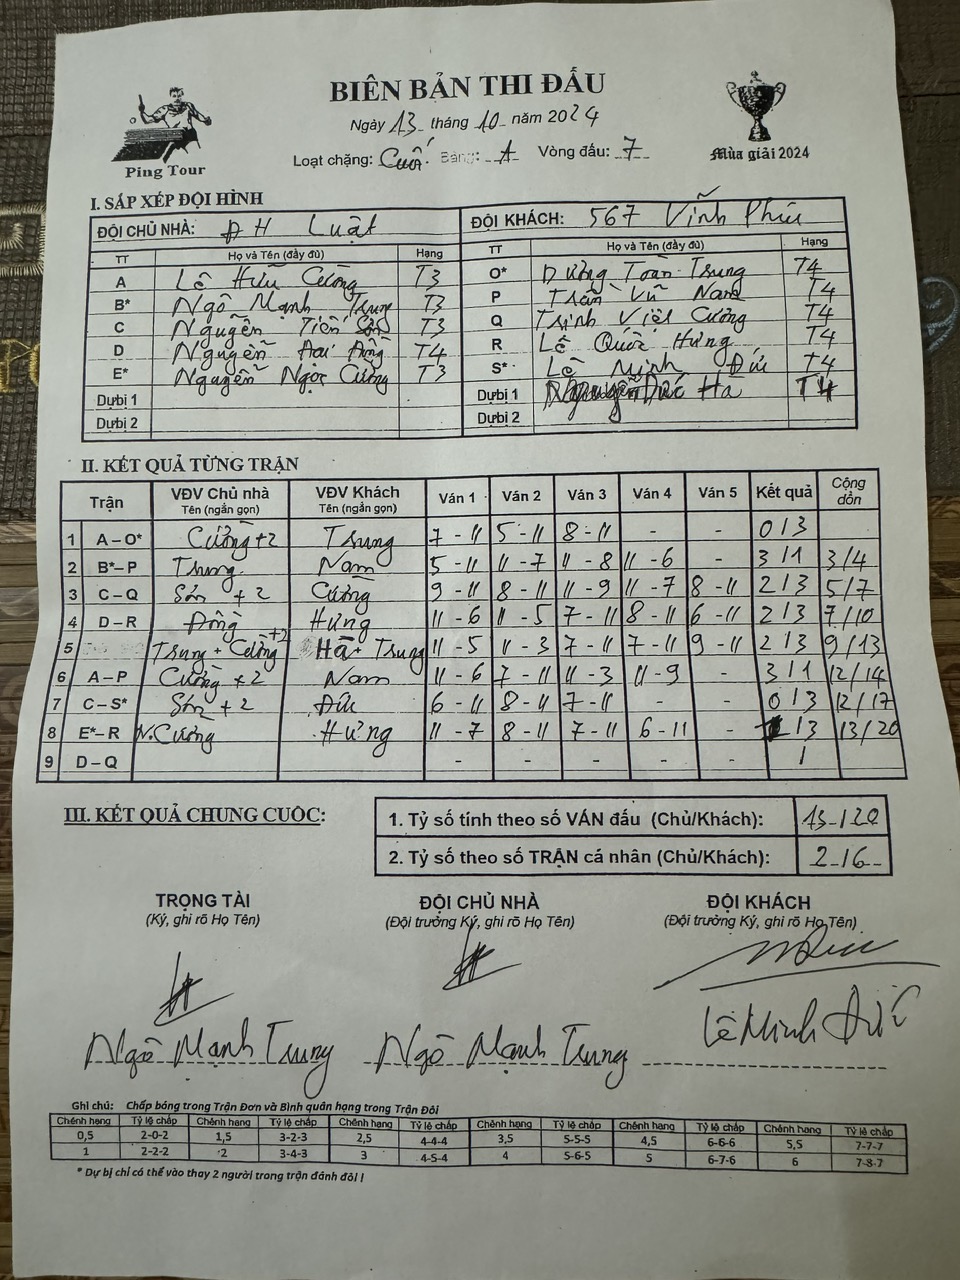 BIÊN BẢN THI ĐẤU
Ngày 13 tháng 10 năm 2024
Loạt chặng: Cuối Bảng: A Vòng đấu: 7
Ping Tour
Mùa giải 2024
I. SẮP XẾP ĐỘI HÌNH
ĐỘI CHỦ NHÀ: ĐH Luật ĐỘI KHÁCH: 567 Vĩnh Phúc
TT Họ và Tên (đầy đủ) Hạng TT Họ và Tên (đầy đủ) Hạng
A Lê Hữu Cường T3 O* Dương Toàn Trung T4
B* Ngô Mạnh Trung T3 P Trần Vũ Nam T4
C Nguyễn Tiến T3 Q Trịnh Việt Cường T4
D Nguyễn Đông T4 R Lê Quốc Hưng T4
E* Nguyễn Ngọc Cường T3 S* Lê Minh Đức T4
Dựbị 1 Dựbị 1 Nguyễn Đức Hà T4
Dựbị 2 Dựbị 2
II. KẾT QUẢ TỪNG TRẬN
Trận VĐV Chủ nhà Tên (ngắn gọn) VĐV Khách Tên (ngắn gọn) Ván 1 Ván 2 Ván 3 Ván 4 Ván 5 Kết quả Cộng dồn
1 A – O* Cường +2 Trung 7 - 11 5 - 11 8 - 11 - - 0/3
2 B* – P Trung Nam 5 - 11 11 - 7 11 - 8 11 - 6 - 3/1 3/4
3 C – Q Sơn +2 Cường 9 - 11 8 - 11 11 - 9 11 - 7 8 - 11 2/3 5/7
4 D – R Đông Hưng 11 - 6 11 - 5 7 - 11 8 - 11 6 - 11 2/3 7/10
5 Trung + Cường +2 Hà + Trung 11 - 5 11 - 3 7 - 11 7 - 11 9 - 11 2/3 9/13
6 A – P Cường +2 Nam 11 - 6 7 - 11 11 - 3 11 - 9 - 3/1 12/14
7 C – S* Sơn +2 Đức 6 - 11 8 - 11 7 - 11 - - 0/3 12/17
8 E* – R N.Cường Hưng 11 - 7 8 - 11 7 - 11 6 - 11 - 1/3 13/20
9 D – Q - - - - - /
III. KẾT QUẢ CHUNG CUỘC:
1. Tỷ số tính theo số VÁN đấu (Chủ/Khách): 13/20
2. Tỷ số theo số TRẬN cá nhân (Chủ/Khách): 2/6
TRỌNG TÀI ĐỘI CHỦ NHÀ ĐỘI KHÁCH
(Ký, ghi rõ Họ Tên) (Đội trưởng Ký, ghi rõ Họ Tên) (Đội trưởng Ký, ghi rõ Họ Tên)
Ngô Mạnh Trung Ngô Mạnh Trung Lê Minh Đức
Ghi chú: Chấp bóng trong Trận Đơn và Bình quân hạng trong Trận Đôi
Chênh hạng Tỷ lệ chấp Chênh hạng Tỷ lệ chấp Chênh hạng Tỷ lệ chấp Chênh hạng Tỷ lệ chấp Chênh hạng Tỷ lệ chấp Chênh hạng Tỷ lệ chấp
0,5 2-0-2 1,5 3-2-3 2,5 4-4-4 3,5 5-5-5 4,5 6-6-6 5,5 7-7-7
1 2-2-2 2 3-4-3 3 4-5-4 4 5-6-5 5 6-7-6 6 7-8-7
* Dự bị chỉ có thể vào thay 2 người trong trận đánh đôi !